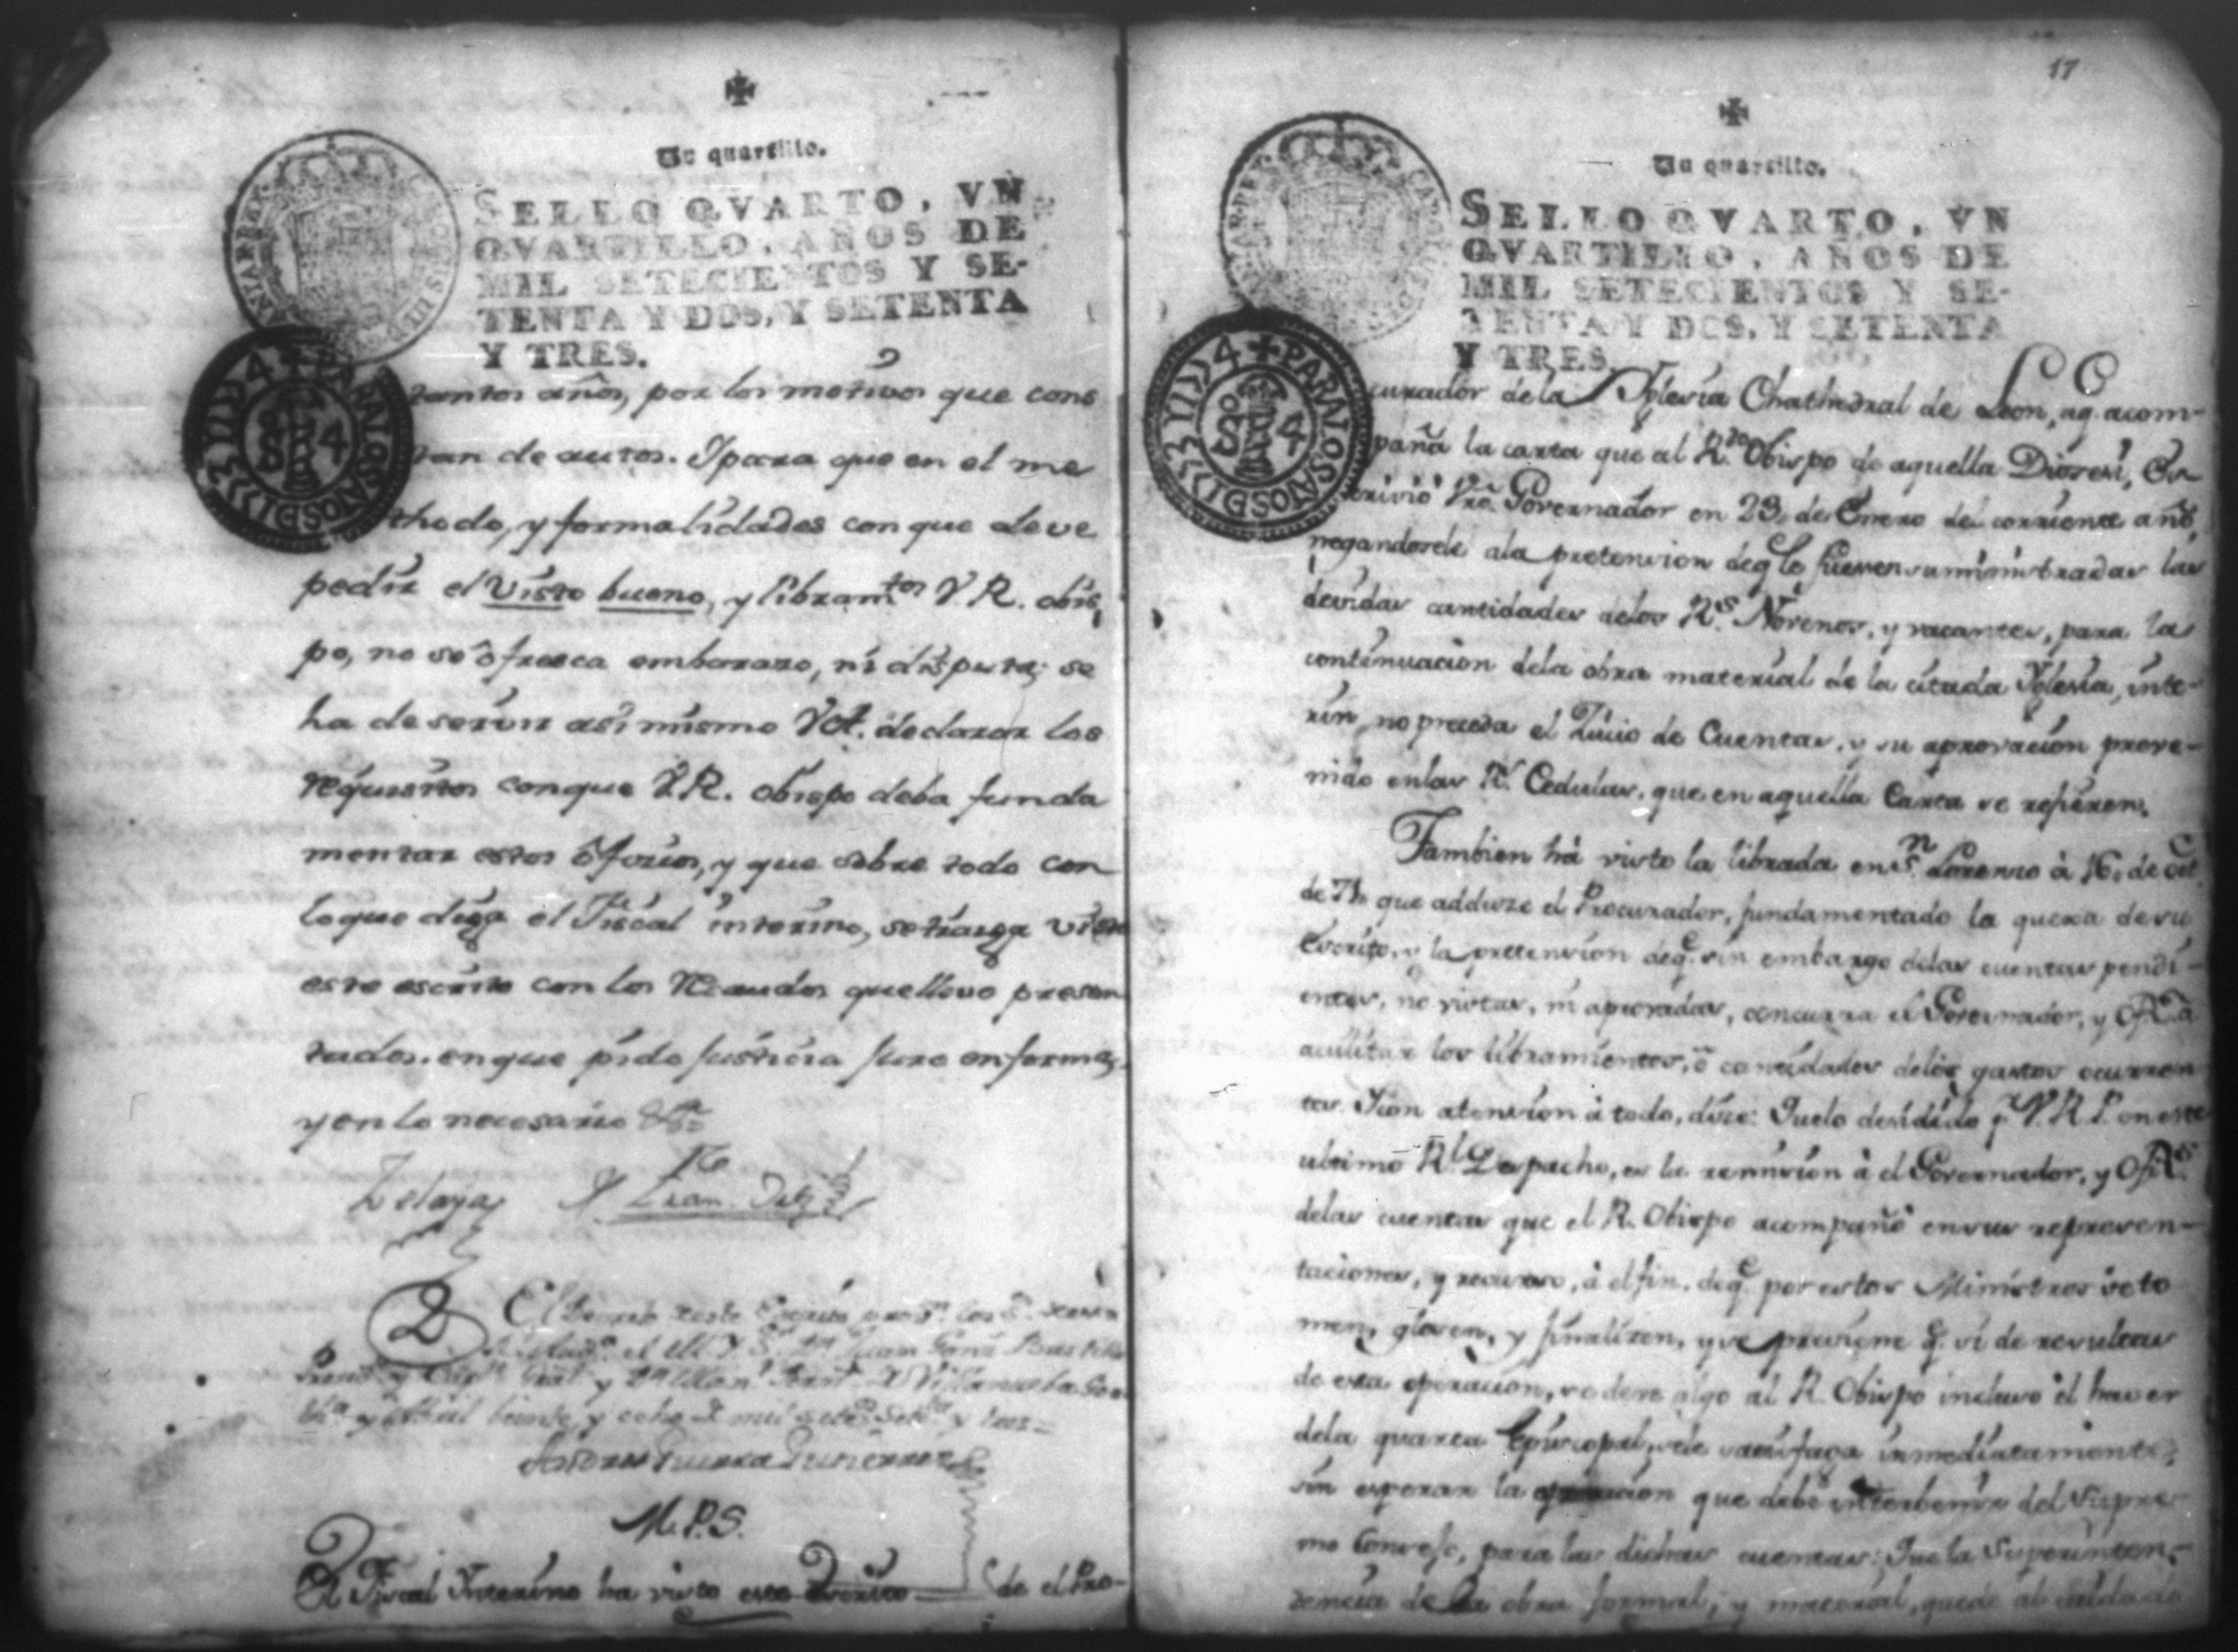 Un quartillo.
SELLO QVARTO, VN
QVARTILLO, AÑOS DE
MIL SETECIENTOS Y SE-
TENTA Y DOS, Y SETENTA
Y TRES.
tantos años, por los motivos que cons
tan de autos. Y para que en el me
thodo, y formalidades con que deve
pedir el visto bueno, y libram.tos V. R. obis
po, no se ofresca embarazo, ni disputa; se
ha de servir asi mismo V A. declarar los
requisitos conque V. R. obispo deba funda
mentar estos oficios, y que sobre todo con
loque diga el Fiscal interino, se traiga visto
este escrito con los Recaudos que llevo presen
tados. en que pido Justicia Juro enforma,
y en lo necesario &a
Zelaya
El
mil y tres=
M. P. S.
El Fiscal Interino ha visto este Escrito de el Pro-
17
Un quartillo.
SELLO QVARTO, VN
QVARTILLO, AÑOS DE
MIL SETECIENTOS Y SE-
TENTA Y DOS, Y SETENTA
Y TRES.
PARALOSAÑOSDE 1773 Y 1774
curador de la Yglesia Chathedral de Leon, aq. acom-
paña la carta que al R.do Obispo de aquella Diocesi, Es-
crivió Vro. Governador en 23, de Enero del corriente año,
negandosele ala pretension deq le fuesen suministradas las
devidas cantidades delos R.s Novenos, y vacantes, para la
continuacion dela obra material de la citada Yglesia, inte-
rin, no preceda el Juicio de Cuentas, y su aprovacion preve-
nido enlas R.s Cedulas, que en aquella Carta se refieren.
Tambien há visto la librada en S.n Lorenzo à 16, de Oct.
de 71, que adduze el Procurador, fundamentado la quexa de su
Escrito, y la pretension deq.e sin embargo delas cuentas pendi-
entes, no vistas, ni aprovadas, concurra el Governador, y
los libramientos, ò cantidades delos gastos ocurren
tes. Y con atencion à todo, dice: Que lo decidido p.r V. R. P. en este
ultimo R.l Despacho, es la remision à el Governador, y
delas cuentas que el R. Obispo acompañó en sus represen-
taciones, y recurso, à el fin, deq.e por estos Ministros se to
men, glosen, y finalizen, y se previene q.e si de resultas
de esta operacion, se deve algo al R. Obispo incluso el haver
dela quarta Episcopal, sele satisfaga inmediatamente,
sin esperar la que debe interbenir del Supre-
mo Consejo, para las dichas cuentas: Que la Superinten-
dencia de la obra formal, y material, quede al cuidado